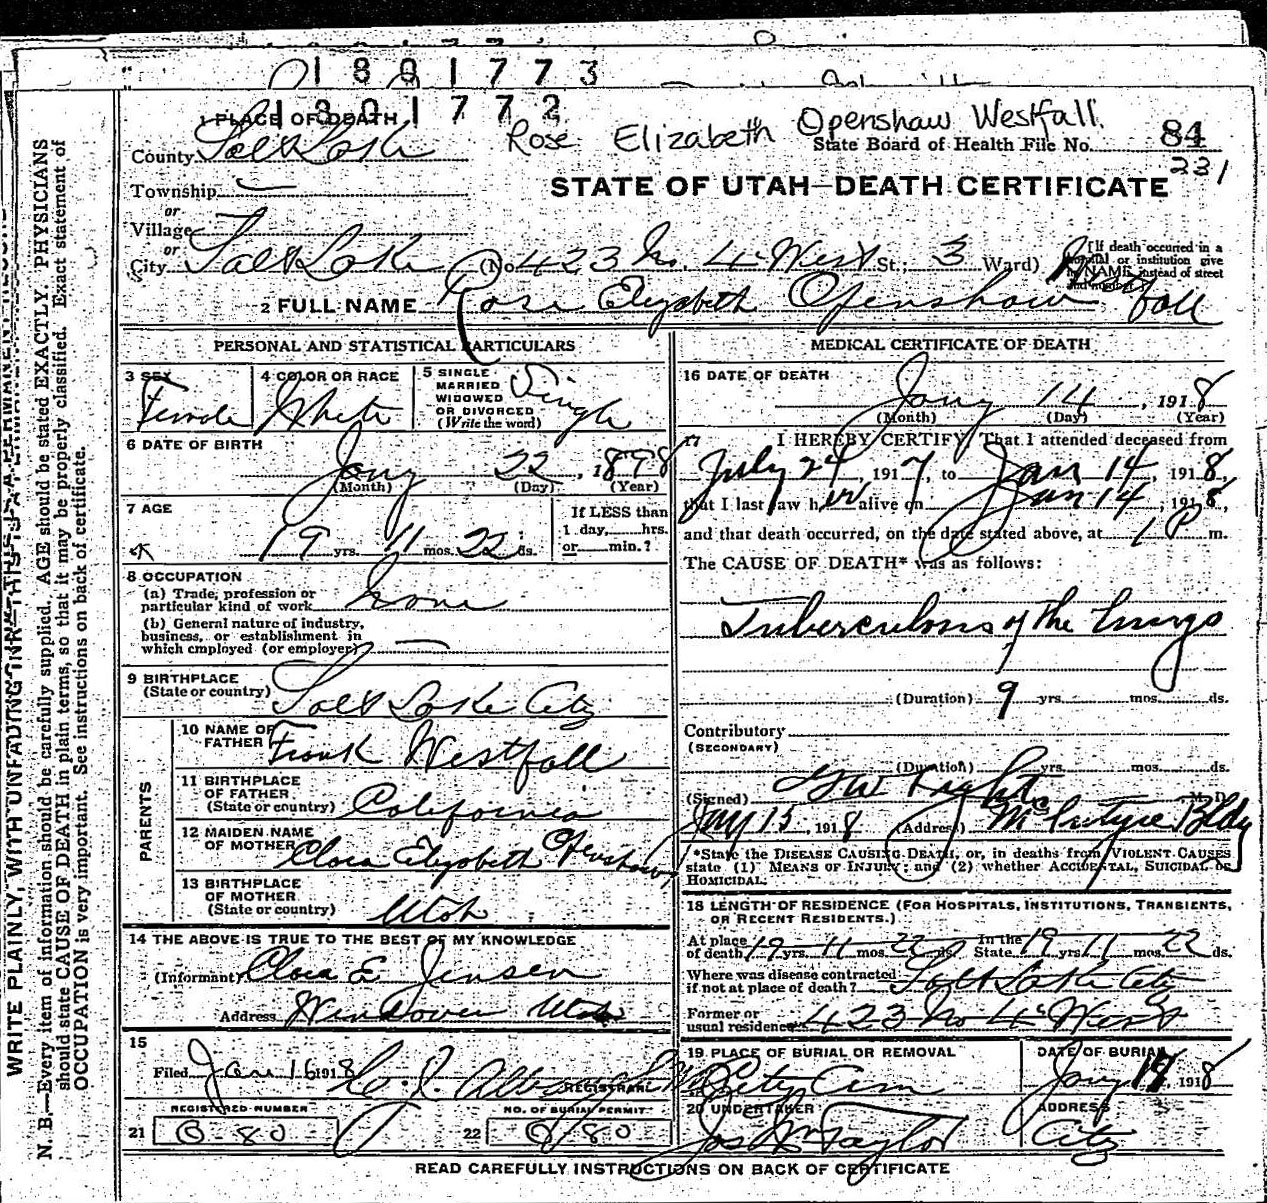 1801773
1801772
Rose Elizabeth Openshaw Westfall.
1 PLACE OF DEATH
County Salt Lake
State Board of Health File No. 84
231
Township
or
Village
or
City Salt Lake (No 423 No. 4 West St.; 3 Ward)
STATE OF UTAH—DEATH CERTIFICATE
[If death occurred in a hospital or institution give its NAME instead of street and number.]
2 FULL NAME Rose Elizabeth Openshaw Westfall
PERSONAL AND STATISTICAL PARTICULARS
3 SEX
Female
4 COLOR OR RACE
White
5 SINGLE
MARRIED
WIDOWED
OR DIVORCED
(Write the word)
Single
6 DATE OF BIRTH
Jany 22, 1898
(Month) (Day) (Year)
7 AGE
19 yrs. 11 mos. 22 ds.
If LESS than
1 day, hrs.
or min.?
8 OCCUPATION
(a) Trade, profession or
particular kind of work
(b) General nature of industry,
business, or establishment in
which employed (or employer)
9 BIRTHPLACE
(State or country) Salt Lake City
PARENTS
10 NAME OF
FATHER Frank Westfall
11 BIRTHPLACE
OF FATHER
(State or country) California
12 MAIDEN NAME
OF MOTHER Clara Elizabeth Openshaw
13 BIRTHPLACE
OF MOTHER
(State or country) Utah
14 THE ABOVE IS TRUE TO THE BEST OF MY KNOWLEDGE
(Informant) Clara E. Jensen
Address Wendover Utah
15
Filed Jan 16 1918
REGISTRAR
REGISTERED NUMBER
21 B-80
NO. OF BURIAL PERMIT
22 B/80
MEDICAL CERTIFICATE OF DEATH
16 DATE OF DEATH
Jany 14, 1918
(Month) (Day) (Year)
17 I HEREBY CERTIFY, That I attended deceased from
July 24, 1917, to Jan 14, 1918,
that I last saw her alive on Jan 14, 1918,
and that death occurred, on the date stated above, at 1 P m.
The CAUSE OF DEATH* was as follows:
Tuberculosis of the Lungs
(Duration) 9 yrs. mos. ds.
Contributory
(SECONDARY)
(Duration) yrs. mos. ds.
(Signed) M. D.
Jany 15, 1918 (Address) McIntyre Bldg
*State the DISEASE CAUSING DEATH, or, in deaths from VIOLENT CAUSES
state (1) MEANS OF INJURY; and (2) whether ACCIDENTAL, SUICIDAL or
HOMICIDAL.
18 LENGTH OF RESIDENCE (FOR HOSPITALS, INSTITUTIONS, TRANSIENTS,
OR RECENT RESIDENTS.)
At place
of death 19 yrs. 11 mos. 22 ds. In the
State 19 yrs. 11 mos. 22 ds.
Where was disease contracted
if not at place of death? Salt Lake City
Former or
usual residence 423 No 4 West
19 PLACE OF BURIAL OR REMOVAL
City Cem
DATE OF BURIAL
Jany 17 1918
20 UNDERTAKER
Jos Wm Taylor
ADDRESS
City
READ CAREFULLY INSTRUCTIONS ON BACK OF CERTIFICATE
WRITE PLAINLY, WITH UNFADING INK—THIS IS A PERMANENT RECORD
N. B.—Every item of information should be carefully supplied. AGE should be stated EXACTLY. PHYSICIANS
should state CAUSE OF DEATH in plain terms, so that it may be properly classified. Exact statement of
OCCUPATION is very important. See instructions on back of certificate.